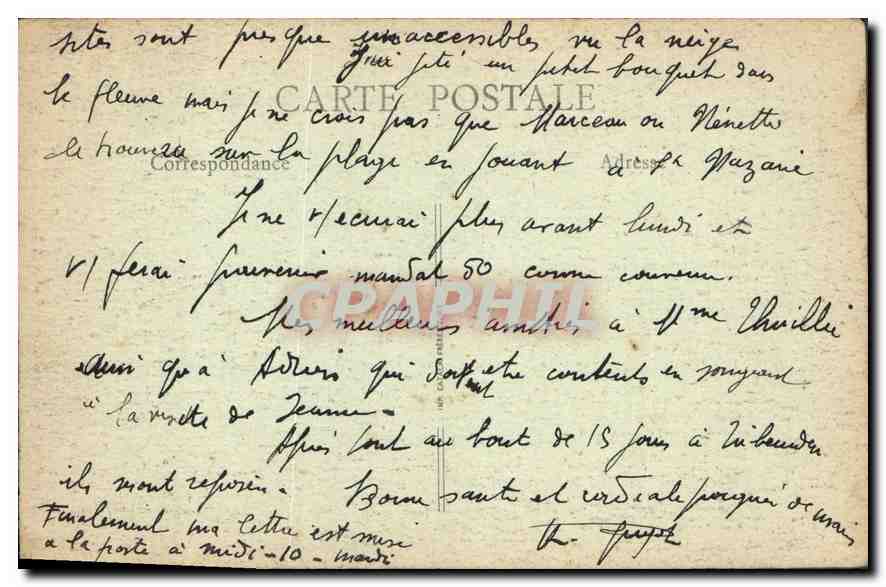 sites sont presque inaccessibles vu la neige
J'ai jeté un petit bouquet dans
le fleuve mais je ne crois pas que Marceau ou Nénette
CARTE POSTALE
le trouvera sur la plage en jouant à St Nazaire
Correspondance
Adresse
Je ne v/ écrirai plus avant lundi et
v/ ferai parvenir mandat 50 comme convenu.
CPAPHIL
Mes meilleurs amitiés à Mme Thuillie
ainsi qu'à qui doivent etre contents en songeant
à la visite de Jeanne -
Après tout au bout de 15 jours à
ils m'ont reposée.
Bonne santé et cordiale poignée de main
Finalement ma lettre est mise
a la poste à midi - 10 - mardi